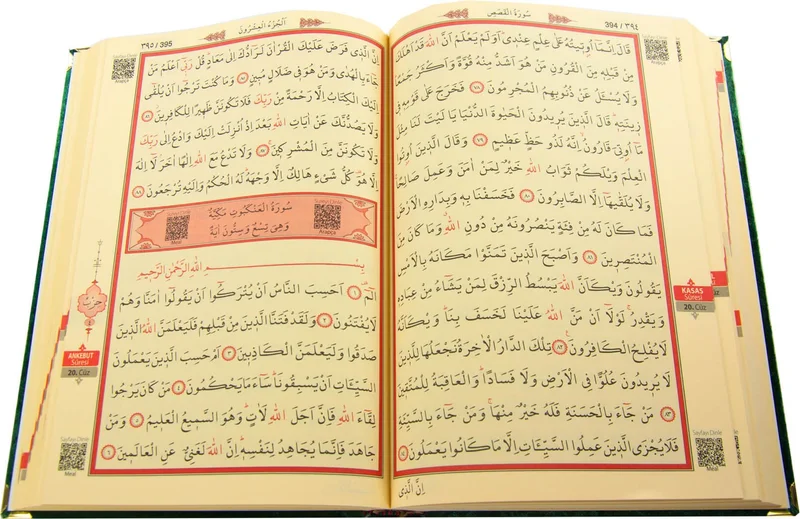 سُورَةُ الْقَصَصِ
394 / ٣٩٤
قَالَ إِنَّمَا أُوتِيتُهُ عَلَى عِلْمٍ عِنْدِي أَوَلَمْ يَعْلَمْ أَنَّ اللهَ قَدْ أَهْلَكَ
مِنْ قَبْلِهِ مِنَ الْقُرُونِ مَنْ هُوَ أَشَدُّ مِنْهُ قُوَّةً وَأَكْثَرُ جَمْعًا
وَلَا يُسْئَلُ عَنْ ذُنُوبِهِمُ الْمُجْرِمُونَ ٧٨ فَخَرَجَ عَلَى قَوْمِهِ فِي
زِينَتِهِ قَالَ الَّذِينَ يُرِيدُونَ الْحَيٰوةَ الدُّنْيَا يَا لَيْتَ لَنَا مِثْلَ
مَا أُوتِيَ قَارُونُ إِنَّهُ لَذُو حَظٍّ عَظِيمٍ ٧٩ وَقَالَ الَّذِينَ أُوتُوا
الْعِلْمَ وَيْلَكُمْ ثَوَابُ اللهِ خَيْرٌ لِمَنْ اٰمَنَ وَعَمِلَ صَالِحًا
وَلَا يُلَقّٰيهَا إِلَّا الصَّابِرُونَ ٨٠ فَخَسَفْنَا بِهِ وَبِدَارِهِ الْأَرْضَ
فَمَا كَانَ لَهُ مِنْ فِئَةٍ يَنْصُرُونَهُ مِنْ دُونِ اللهِ وَمَا كَانَ مِنَ
الْمُنْتَصِرِينَ ٨١ وَأَصْبَحَ الَّذِينَ تَمَنَّوْا مَكَانَهُ بِالْأَمْسِ
يَقُولُونَ وَيْكَأَنَّ اللهَ يَبْسُطُ الرِّزْقَ لِمَنْ يَشَاءُ مِنْ عِبَادِهِ
وَيَقْدِرُ لَوْلَا أَنْ مَنَّ اللهُ عَلَيْنَا لَخَسَفَ بِنَا وَيْكَأَنَّهُ
لَا يُفْلِحُ الْكَافِرُونَ ٨٢ تِلْكَ الدَّارُ الْاٰخِرَةُ نَجْعَلُهَا لِلَّذِينَ
لَا يُرِيدُونَ عُلُوًّا فِي الْأَرْضِ وَلَا فَسَادًا وَالْعَاقِبَةُ لِلْمُتَّقِينَ
٨٣ مَنْ جَاءَ بِالْحَسَنَةِ فَلَهُ خَيْرٌ مِنْهَا وَمَنْ جَاءَ بِالسَّيِّئَةِ
فَلَا يُجْزَى الَّذِينَ عَمِلُوا السَّيِّـَٔاتِ إِلَّا مَا كَانُوا يَعْمَلُونَ ٨٤
إِنَّ الَّذِي
Arapça
KASAS
Sûresi
20. Cüz
Sayfayı Dinle
Meal
٣٩٥ / 395
اَلْجُزْءُ الْعِشْرُونَ
إِنَّ الَّذِي فَرَضَ عَلَيْكَ الْقُرْاٰنَ لَرَادُّكَ إِلَى مَعَادٍ قُلْ رَبِّي أَعْلَمُ مَنْ
جَاءَ بِالْهُدَى وَمَنْ هُوَ فِي ضَلَالٍ مُبِينٍ ٨٥ وَمَا كُنْتَ تَرْجُوا أَنْ يُلْقَى
إِلَيْكَ الْكِتَابُ إِلَّا رَحْمَةً مِنْ رَبِّكَ فَلَا تَكُونَنَّ ظَهِيرًا لِلْكَافِرِينَ ٨٦
وَلَا يَصُدُّنَّكَ عَنْ اٰيَاتِ اللهِ بَعْدَ إِذْ أُنْزِلَتْ إِلَيْكَ وَادْعُ إِلَى رَبِّكَ
وَلَا تَكُونَنَّ مِنَ الْمُشْرِكِينَ ٨٧ وَلَا تَدْعُ مَعَ اللهِ إِلٰهًا اٰخَرَ لَا إِلٰهَ
إِلَّا هُوَ كُلُّ شَيْءٍ هَالِكٌ إِلَّا وَجْهَهُ لَهُ الْحُكْمُ وَإِلَيْهِ تُرْجَعُونَ ٨٨
سُورَةُ الْعَنْكَبُوتِ مَكِّيَّةٌ
وَهِيَ تِسْعٌ وَسِتُّونَ اٰيَةً
Meal
Arapça
بِسْمِ اللهِ الرَّحْمٰنِ الرَّحِيمِ
الٓمٓ ١ أَحَسِبَ النَّاسُ أَنْ يُتْرَكُوا أَنْ يَقُولُوا اٰمَنَّا وَهُمْ
لَا يُفْتَنُونَ ٢ وَلَقَدْ فَتَنَّا الَّذِينَ مِنْ قَبْلِهِمْ فَلَيَعْلَمَنَّ اللهُ الَّذِينَ
صَدَقُوا وَلَيَعْلَمَنَّ الْكَاذِبِينَ ٣ أَمْ حَسِبَ الَّذِينَ يَعْمَلُونَ
السَّيِّـَٔاتِ أَنْ يَسْبِقُونَا سَاءَ مَا يَحْكُمُونَ ٤ مَنْ كَانَ يَرْجُوا
لِقَاءَ اللهِ فَإِنَّ أَجَلَ اللهِ لَاٰتٍ وَهُوَ السَّمِيعُ الْعَلِيمُ ٥ وَمَنْ
جَاهَدَ فَإِنَّمَا يُجَاهِدُ لِنَفْسِهِ إِنَّ اللهَ لَغَنِيٌّ عَنِ الْعَالَمِينَ ٦
Sayfayı Dinle
Arapça
حِزْبٌ
ANKEBUT
Sûresi
20. Cüz
Sayfayı Dinle
Meal